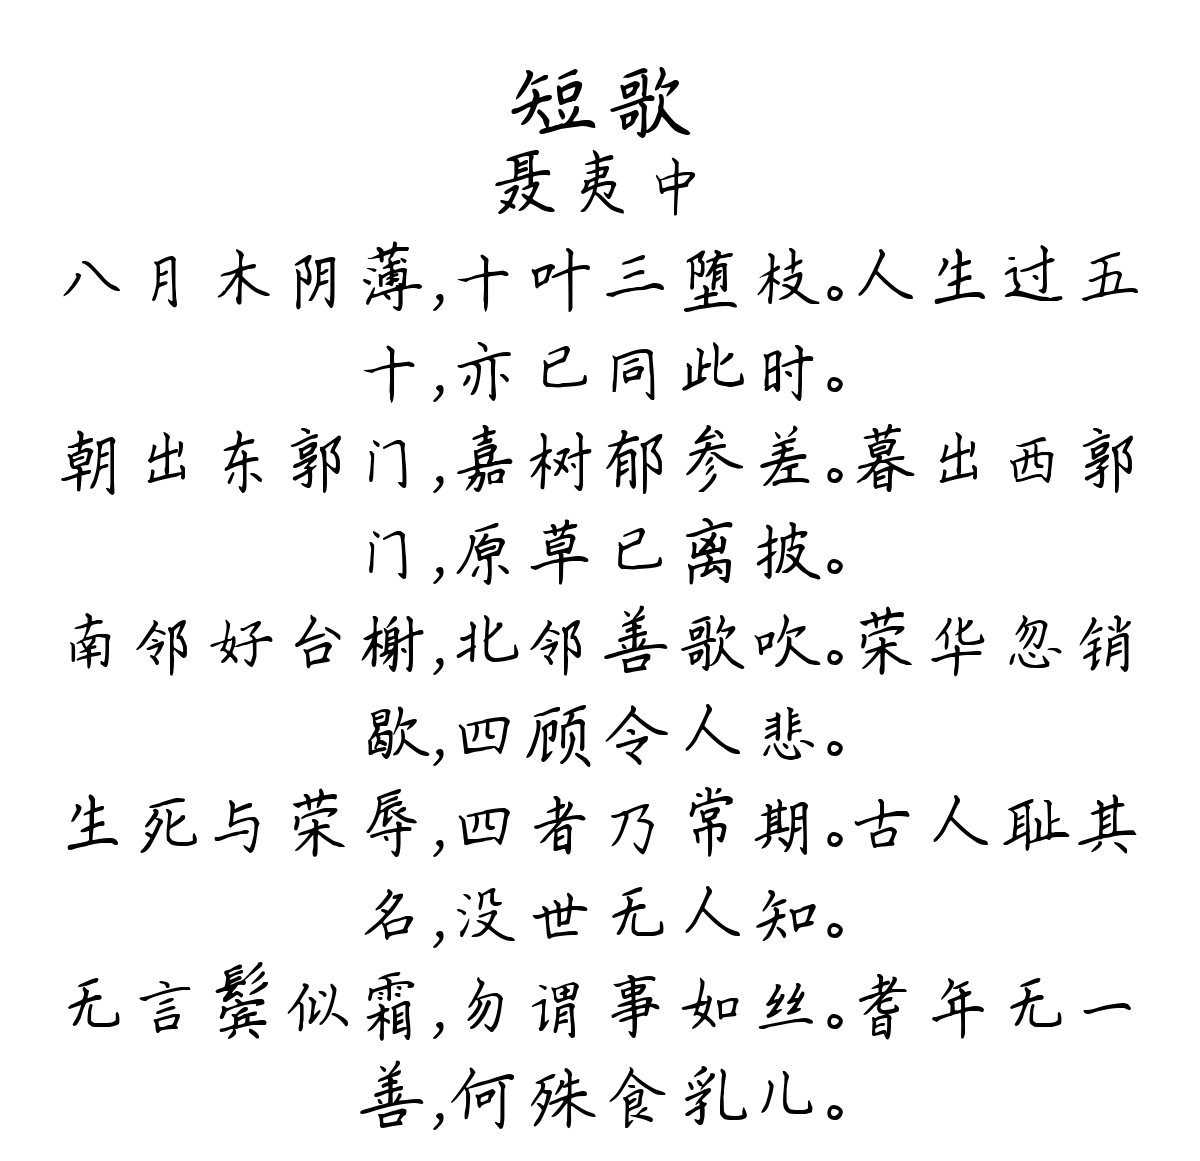 短歌
聂夷中
八月木阴薄,十叶三堕枝。人生过五
十,亦已同此时。
朝出东郭门,嘉树郁参差。暮出西郭
门,原草已离披。
南邻好台榭,北邻善歌吹。荣华忽销
歇,四顾令人悲。
生死与荣辱,四者乃常期。古人耻其
名,没世无人知。
无言鬓似霜,勿谓事如丝。耆年无一
善,何殊食乳儿。